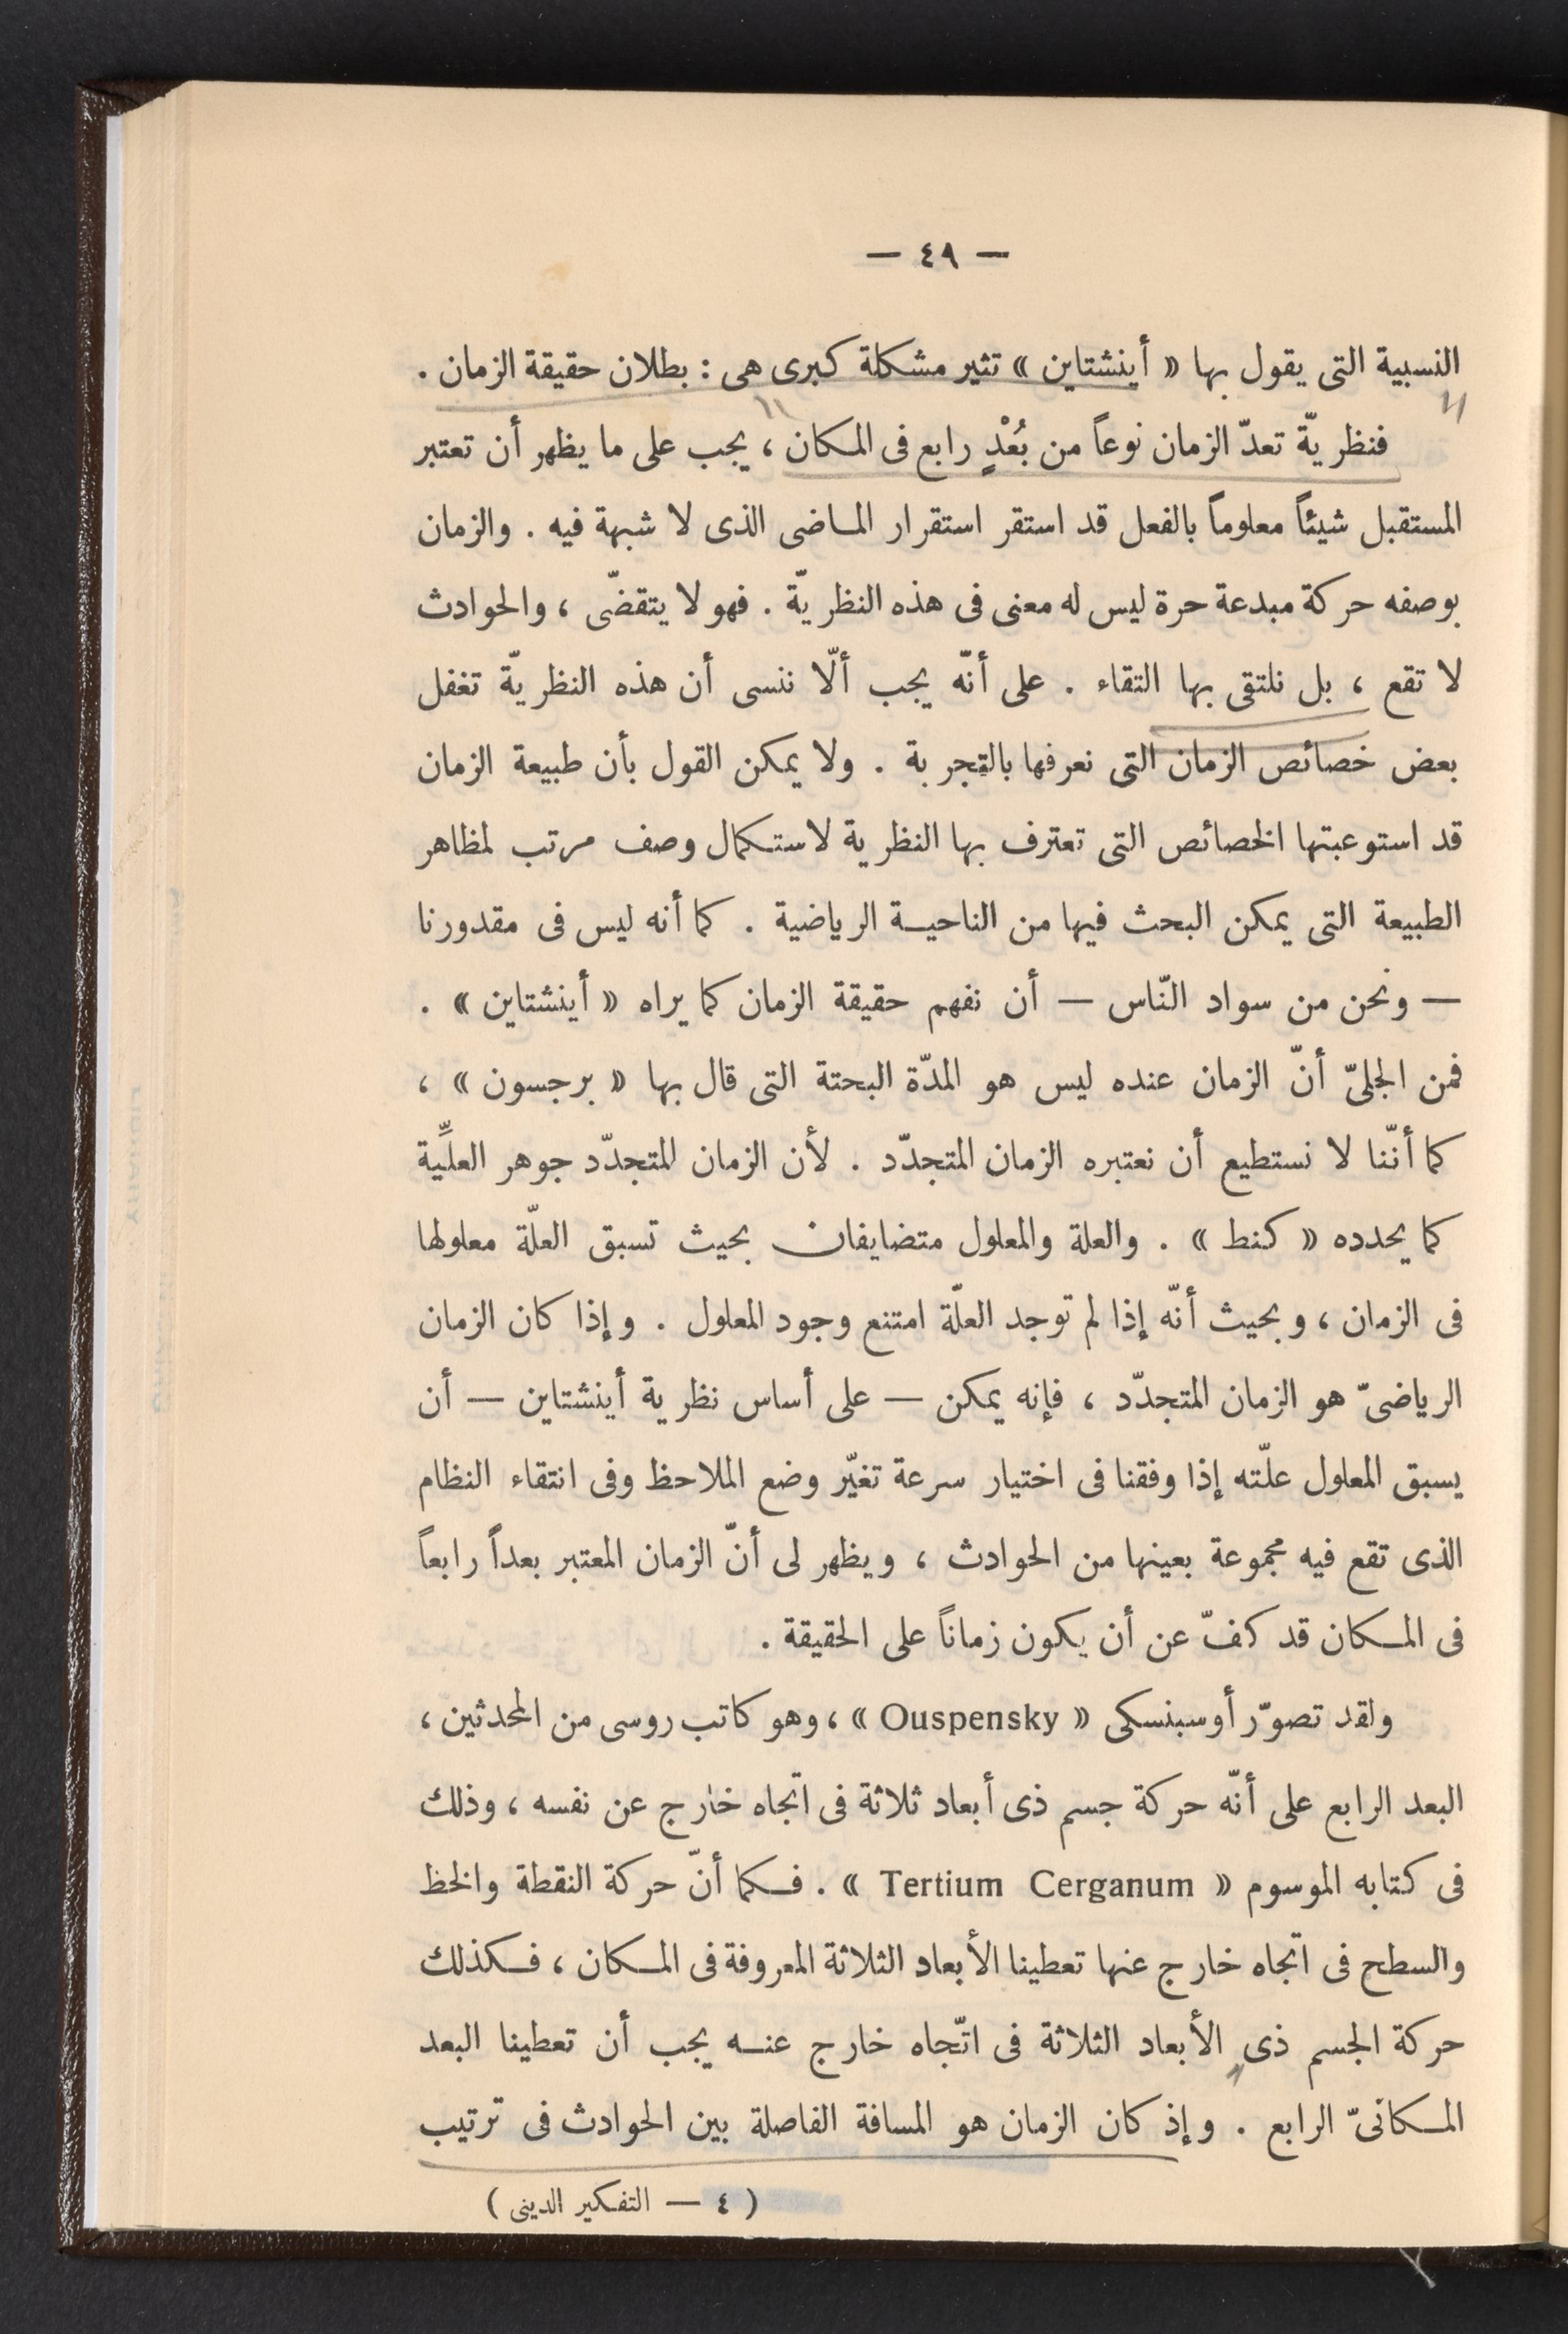 — ٤٩ —
النسبية التى يقول بها « أينشتاين » تثير مشكلة كبرى هى : بطلان حقيقة الزمان .
فنظريّة تعدّ الزمان نوعاً من بُعْدٍ رابع فى المكان ، يجب على ما يظهر أن تعتبر
المستقبل شيئاً معلوماً بالفعل قد استقر استقرار الماضى الذى لا شبهة فيه . والزمان
بوصفه حركة مبدعة حرة ليس له معنى فى هذه النظريّة . فهو لا يتقضّى ، والحوادث
لا تقع ، بل نلتقى بها التقاء . على أنّه يجب ألّا ننسى أن هذه النظريّة تغفل
بعض خصائص الزمان التى نعرفها بالتجربة . ولا يمكن القول بأن طبيعة الزمان
قد استوعبتها الخصائص التى تعترف بها النظرية لاستكمال وصف مرتب لمظاهر
الطبيعة التى يمكن البحث فيها من الناحية الرياضية . كما أنه ليس فى مقدورنا
— ونحن من سواد النّاس — أن نفهم حقيقة الزمان كما يراه « أينشتاين » .
فمن الجلىّ أنّ الزمان عنده ليس هو المدّة البحتة التى قال بها « برجسون » ،
كما أنّنا لا نستطيع أن نعتبره الزمان المتجدّد . لأن الزمان المتجدّد جوهر العلِّيّة
كما يحدده « كنط » . والعلة والمعلول متضايفان بحيث تسبق العلّة معلولها
فى الزمان ، وبحيث أنّه إذا لم توجد العلّة امتنع وجود المعلول . وإذا كان الزمان
الرياضىّ هو الزمان المتجدّد ، فإنه يمكن — على أساس نظرية أينشتاين — أن
يسبق المعلول علّته إذا وفقنا فى اختيار سرعة تغيّر وضع الملاحظ وفى انتقاء النظام
الذى تقع فيه مجموعة بعينها من الحوادث ، ويظهر لى أنّ الزمان المعتبر بعداً رابعاً
فى المكان قد كفّ عن أن يكون زماناً على الحقيقة .
ولقد تصوّر أوسبنسكى « Ouspensky » ، وهو كاتب روسى من المحدثين ،
البعد الرابع على أنّه حركة جسم ذى أبعاد ثلاثة فى اتجاه خارج عن نفسه ، وذلك
فى كتابه الموسوم « Tertium Cerganum » . فكما أنّ حركة النقطة والخط
والسطح فى اتجاه خارج عنها تعطينا الأبعاد الثلاثة المعروفة فى المكان ، فكذلك
حركة الجسم ذى الأبعاد الثلاثة فى اتّجاه خارج عنه يجب أن تعطينا البعد
المكانىّ الرابع . وإذ كان الزمان هو المسافة الفاصلة بين الحوادث فى ترتيب
( ٤ — التفكير الدينى )